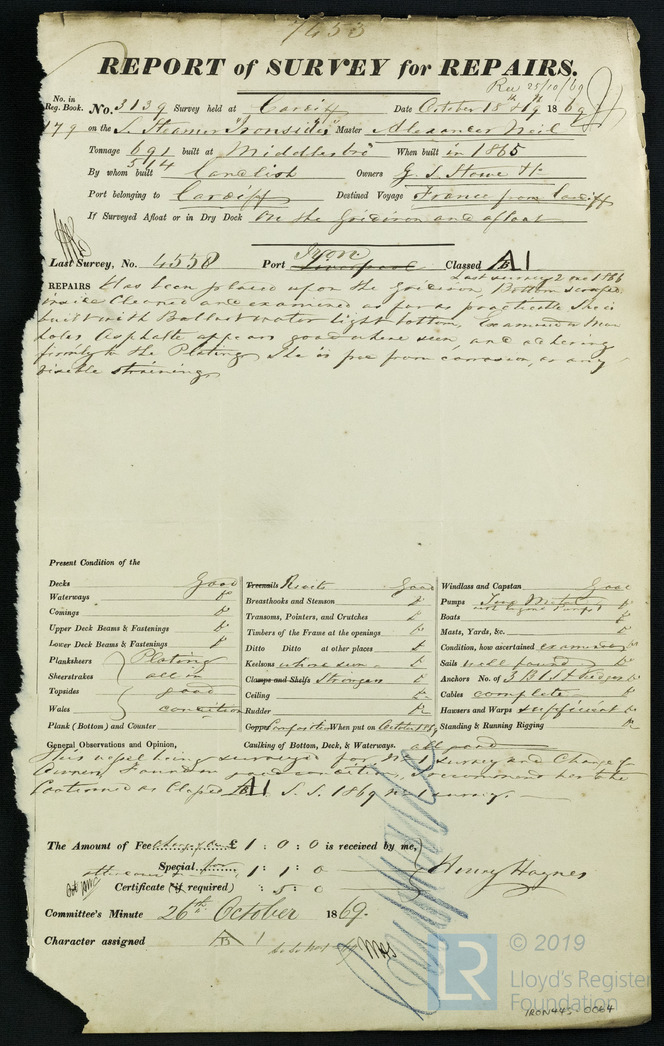 7453
REPORT of SURVEY for REPAIRS.
Rec 25/10/69
No. in Reg. Book. No. 3139 Survey held at Cardiff Date October 18th & 19 1869
179 on the S. Steamer "Ironsides" Master Alexander Neil
Tonnage 691 built at Middlesbro' When built in 1865
514
By whom built Candlish Owners G. S. Stowe & Co
Port belonging to Cardiff Destined Voyage France from Cardiff
If Surveyed Afloat or in Dry Dock On the Gridiron and afloat
Last Survey, No. 4558 Port Liverpool Tyne Classed A 1
Last survey 2 no 1866
REPAIRS Has been placed upon the Gridiron, Bottom scraped,
inside Cleaned and examined as far as practicable She is
built with Ballast water tight bottom, Examined Man
holes Asphalte appears good where seen, and adhering
firmly to the Plating She is free from corrosion, or any
visible straining
Present Condition of the
Decks Good
Waterways Do
Comings Do
Upper Deck Beams & Fastenings Do
Lower Deck Beams & Fastenings Do
Planksheers Plating
Sheerstrakes all in
Topsides good
Wales condition
Plank (Bottom) and Counter
Treenails Rivets Good
Breasthooks and Stemson Do
Transoms, Pointers, and Crutches Do
Timbers of the Frame at the openings Do
Ditto Ditto at other places Do
Keelsons where seen Do
Clamps and Shelfs Stringers Do
Ceiling Do
Rudder Do
Copper Composition When put on October 1869
Caulking of Bottom, Deck, & Waterways. all good
Windlass and Capstan Good
Pumps Two Metal Do
Boats Do
Masts, Yards, &c. Do
Condition, how ascertained examined Do
Sails well found Do
Anchors No. of 3 B 1 S & Kedges Do
Cables complete Do
Hawsers and Warps sufficient Do
Standing & Running Rigging Do
General Observations and Opinion,
This vessel being surveyed for No 1 survey and Change of
Owners, Found in good condition, I recommend her to be
Continued as Classed A 1 S. S. 1869 no 1 survey.
The Amount of Fee Change Own £ 1 : 0 : 0 is received by me,
Special for 1 : 1 : 0
Certificate (if required) : 5 : 0
Henry Haynes
Committee's Minute 26th October 1869.
Character assigned A 1
© 2019
LR
Lloyd's Register
Foundation
IRON445-0064